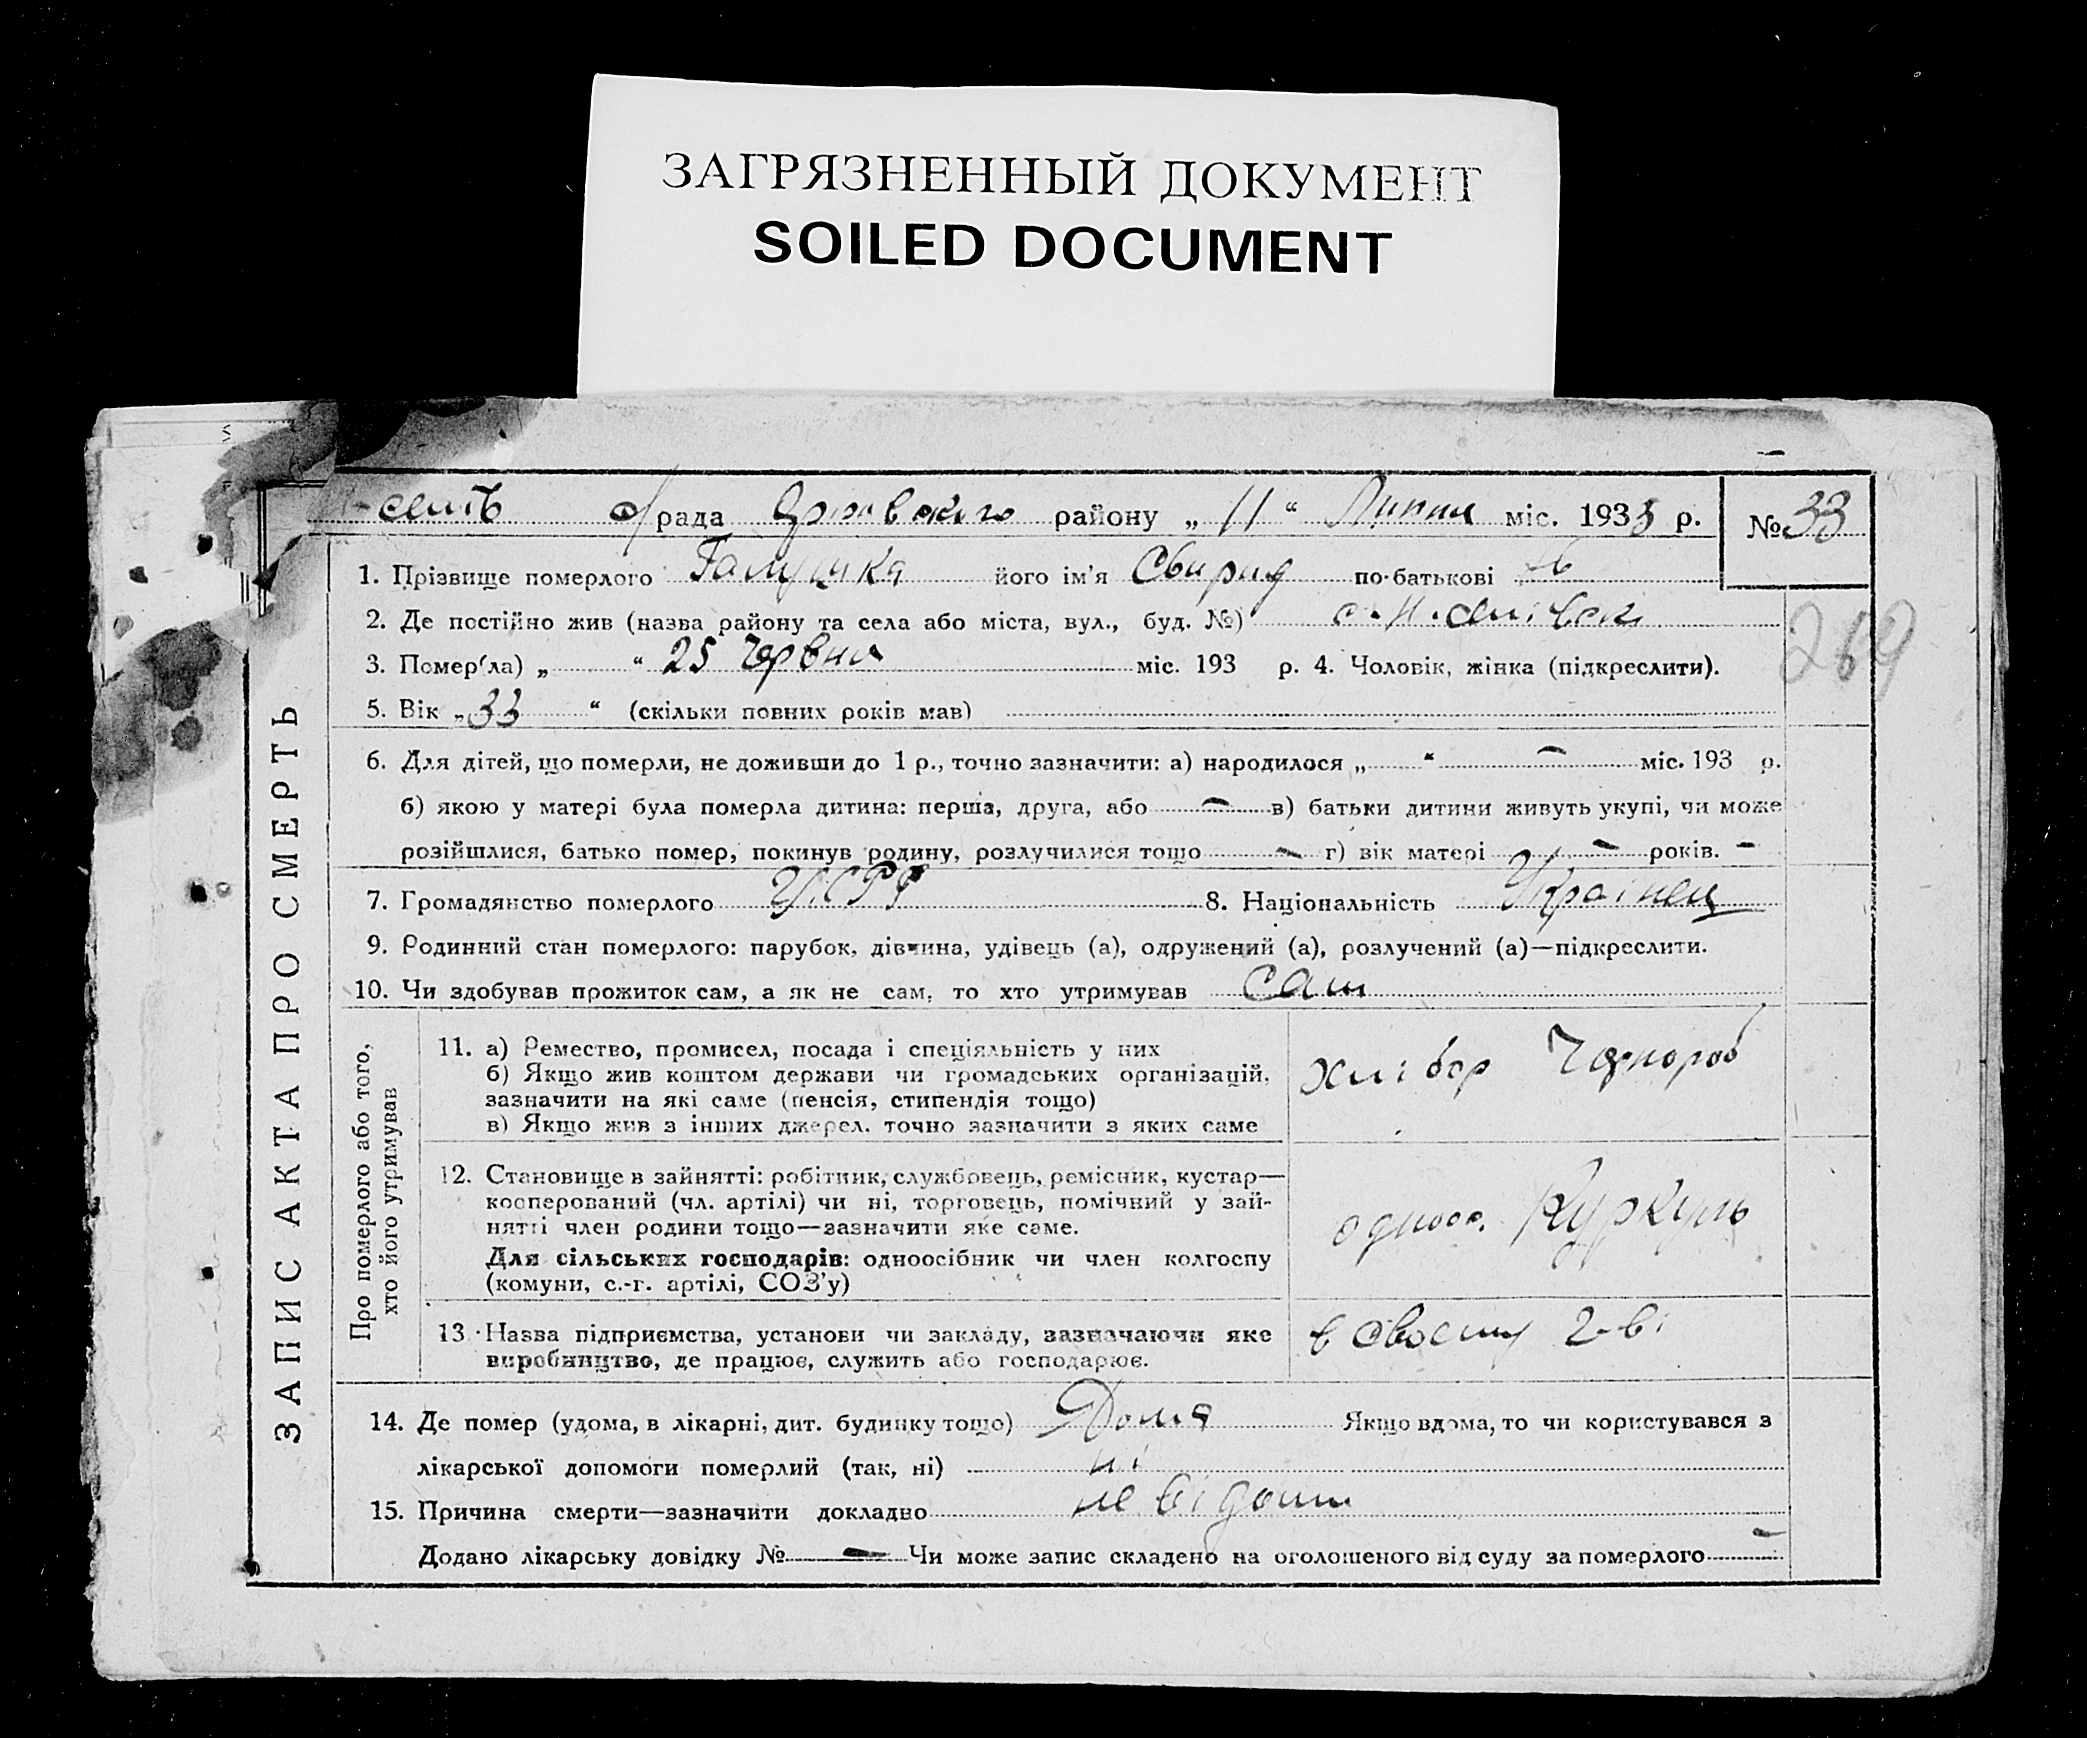 ЗАГРЯЗНЕННЫЙ ДОКУМЕНТ
SOILED DOCUMENT
рада району „ 11 “ Липня міс. 1933 р. № 33
1. Прізвище померлого Галушка його ім'я Свирид по-батькові
2. Де постійно жив (назва району та села або міста, вул., буд. №)
3. Помер(ла) „ “ 25 червня міс. 193 р. 4. Чоловік, жінка (підкреслити).
269
5. Вік „ 33 “ (скільки повних років мав)
6. Для дітей, що померли, не доживши до 1 р., точно зазначити: а) народилося „ “ — міс. 193 р.
б) якою у матері була померла дитина: перша, друга, або — в) батьки дитини живуть укупі, чи може
розійшлися, батько помер, покинув родину, розлучилися тощо — г) вік матері — років. —
7. Громадянство померлого УСРР 8. Національність Українец
9. Родинний стан померлого: парубок, дівчина, удівець (а), одружений (а), розлучений (а)—підкреслити.
10. Чи здобував прожиток сам, а як не сам, то хто утримував сам
ЗАПИС АКТА ПРО СМЕРТЬ
Про померлого або того,
хто його утримував
11. а) Ремество, промисел, посада і спеціяльність у них
б) Якщо жив коштом держави чи громадських організацій,
зазначити на які саме (пенсія, стипендія тощо)
в) Якщо жив з інших джерел, точно зазначити з яких саме
хлібор Чорнороб
12. Становище в зайнятті: робітник, службовець, ремісник, кустар—
кооперований (чл. артілі) чи ні, торговець, помічний у зай-
нятті член родини тощо—зазначити яке саме.
Для сільських господарів: одноосібник чи член колгоспу
(комуни, с.-г. артілі, СОЗ'у)
одноос. Куркуль
13. Назва підприємства, установи чи закладу, зазначаючи яке
виробництво, де працює, служить або господарює.
в своему г-ві
14. Де помер (удома, в лікарні, дит. будинку тощо) Дома Якщо вдома, то чи користувався з
лікарської допомоги померлий (так, ні) ні
15. Причина смерти—зазначити докладно невідомо
Додано лікарську довідку № — Чи може запис складено на оголошеного від суду за померлого —